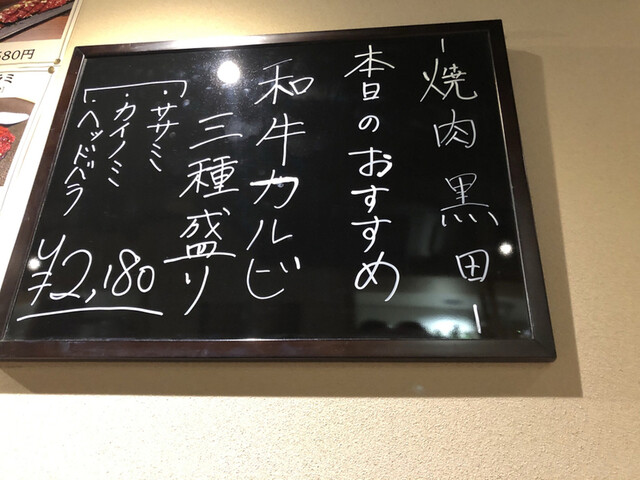 ー焼肉黒田ー
本日のおすすめ
和牛カルビ
三種盛り
・ササミ
・カイノミ
・ヘッドバラ
¥2,180
580円